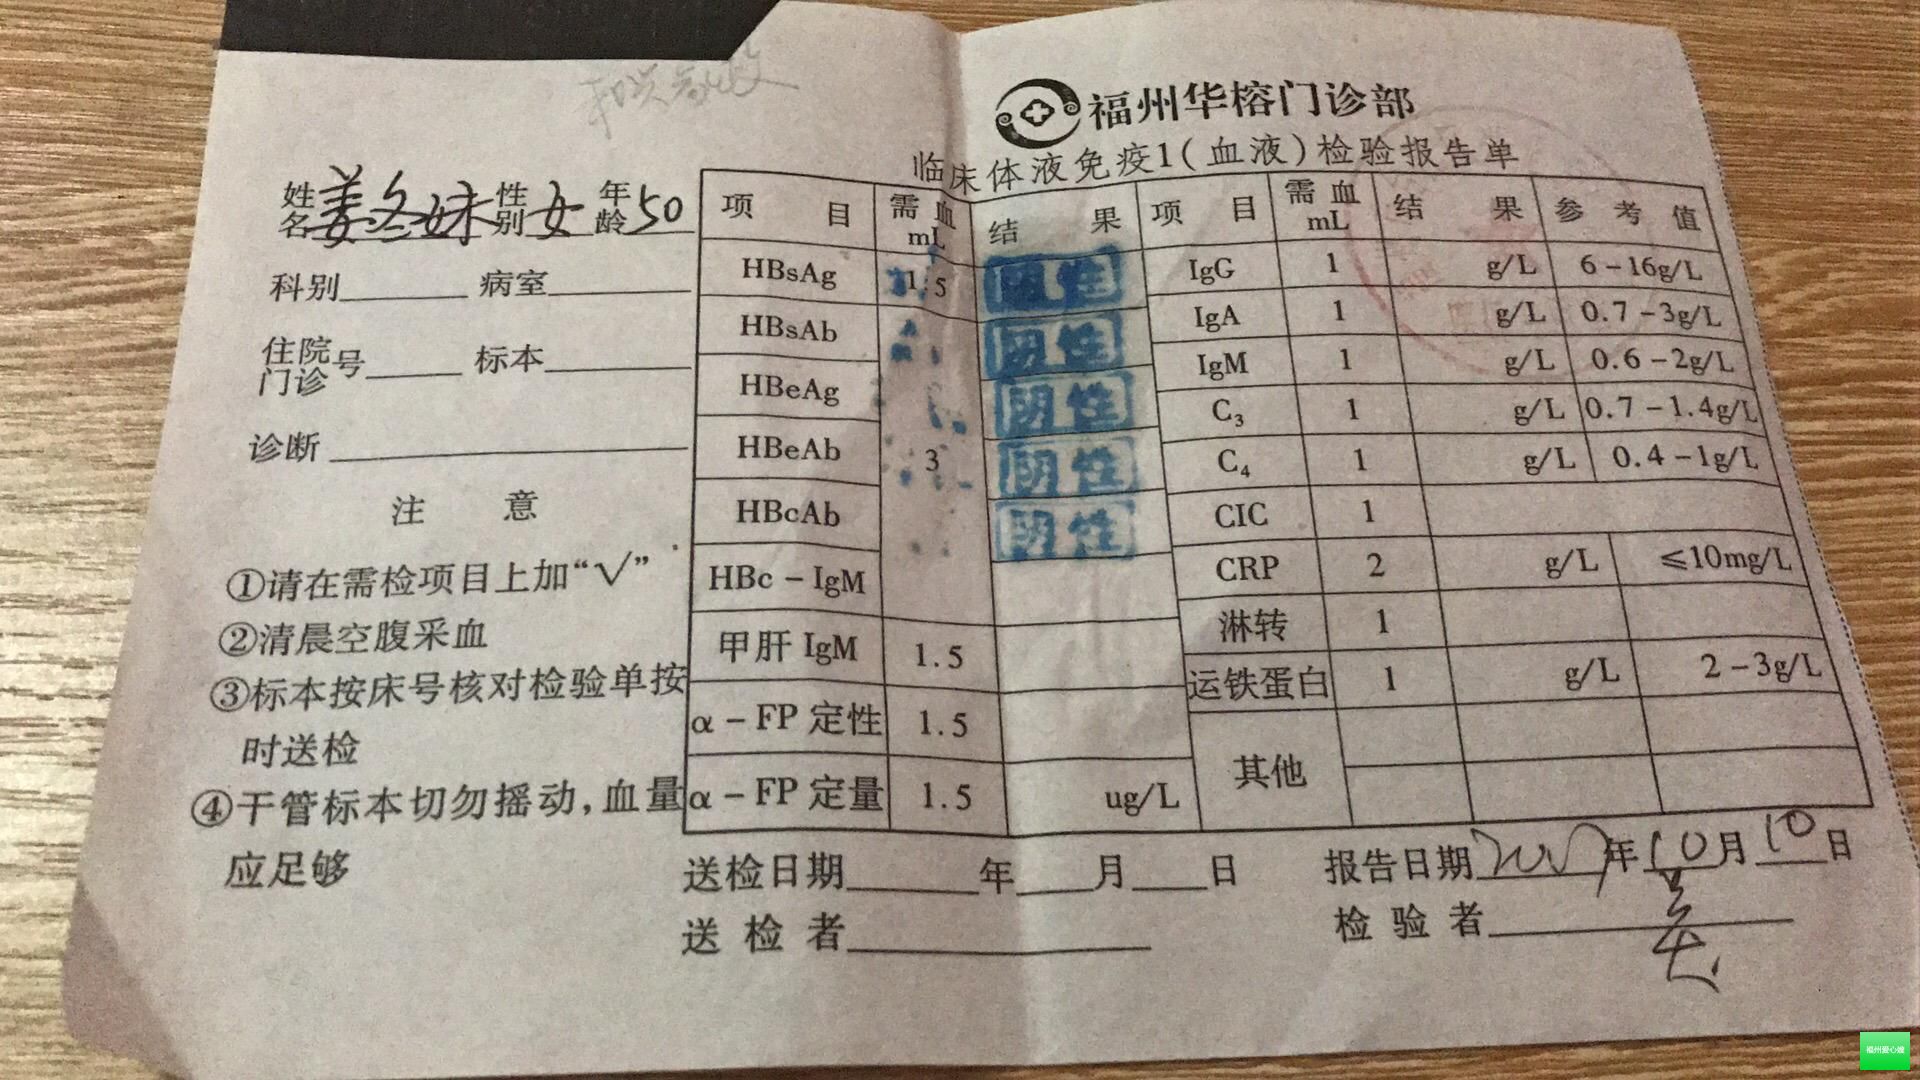 福州华榕门诊部
临床体液免疫1(血液)检验报告单
姓名 姜冬妹 性别 女 年龄 50
科别 病室
住院门诊号 标本
诊断
注 意
①请在需检项目上加“√”
②清晨空腹采血
③标本按床号核对检验单按
时送检
④干管标本切勿摇动,血量
应足够
项目 需血mL 结果 项目 需血mL 结果 参考值
HBsAg 1.5 阴性 IgG 1 g/L 6-16g/L
HBsAb 阴性 IgA 1 g/L 0.7-3g/L
HBeAg 阴性 IgM 1 g/L 0.6-2g/L
C3 1 g/L 0.7-1.4g/L
HBeAb 3 阴性 C4 1 g/L 0.4-1g/L
HBcAb 阴性 CIC 1
HBc-IgM CRP 2 g/L ≤10mg/L
淋转 1
甲肝 IgM 1.5 运铁蛋白 1 g/L 2-3g/L
α-FP 定性 1.5
α-FP 定量 1.5 ug/L 其他
送检日期 年 月 日 报告日期 年 10 月 10 日
送检者 检验者
福州爱心嫂